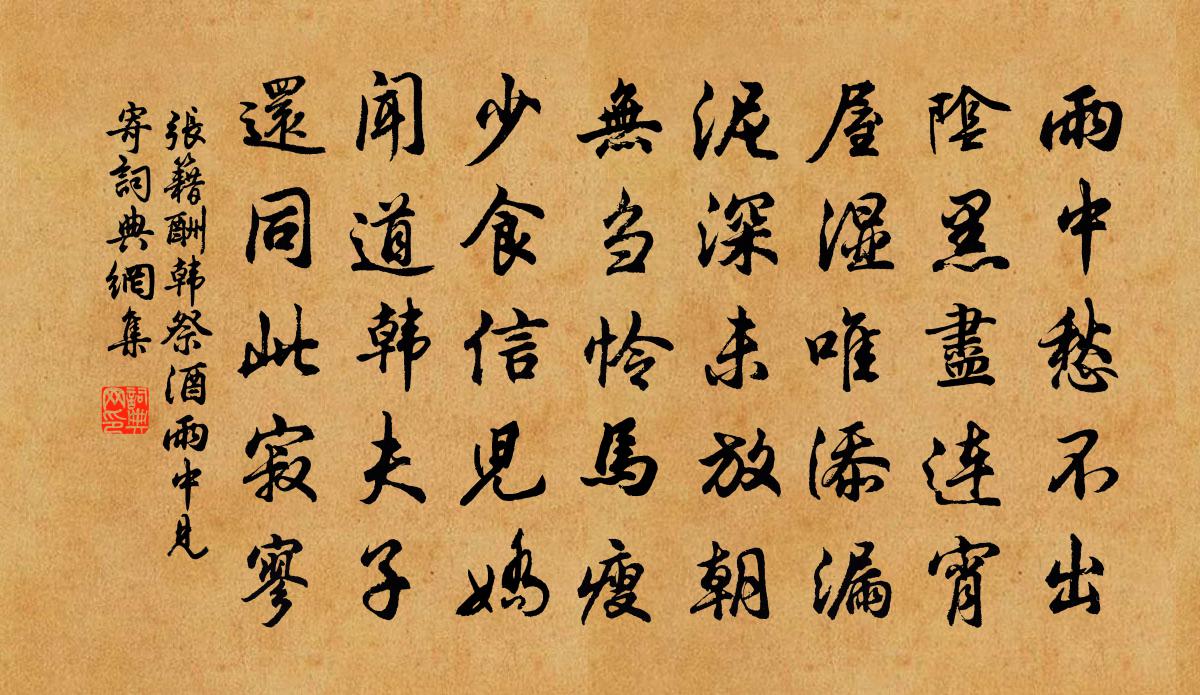 雨中愁不出
陰黑盡連宵
屋濕唯添漏
泥深未放朝
無芻怜馬瘦
少食信兒嬌
聞道韩夫子
還同此寂寥
張籍酬韩祭酒雨中見
寄詞典網集
詞典
网印